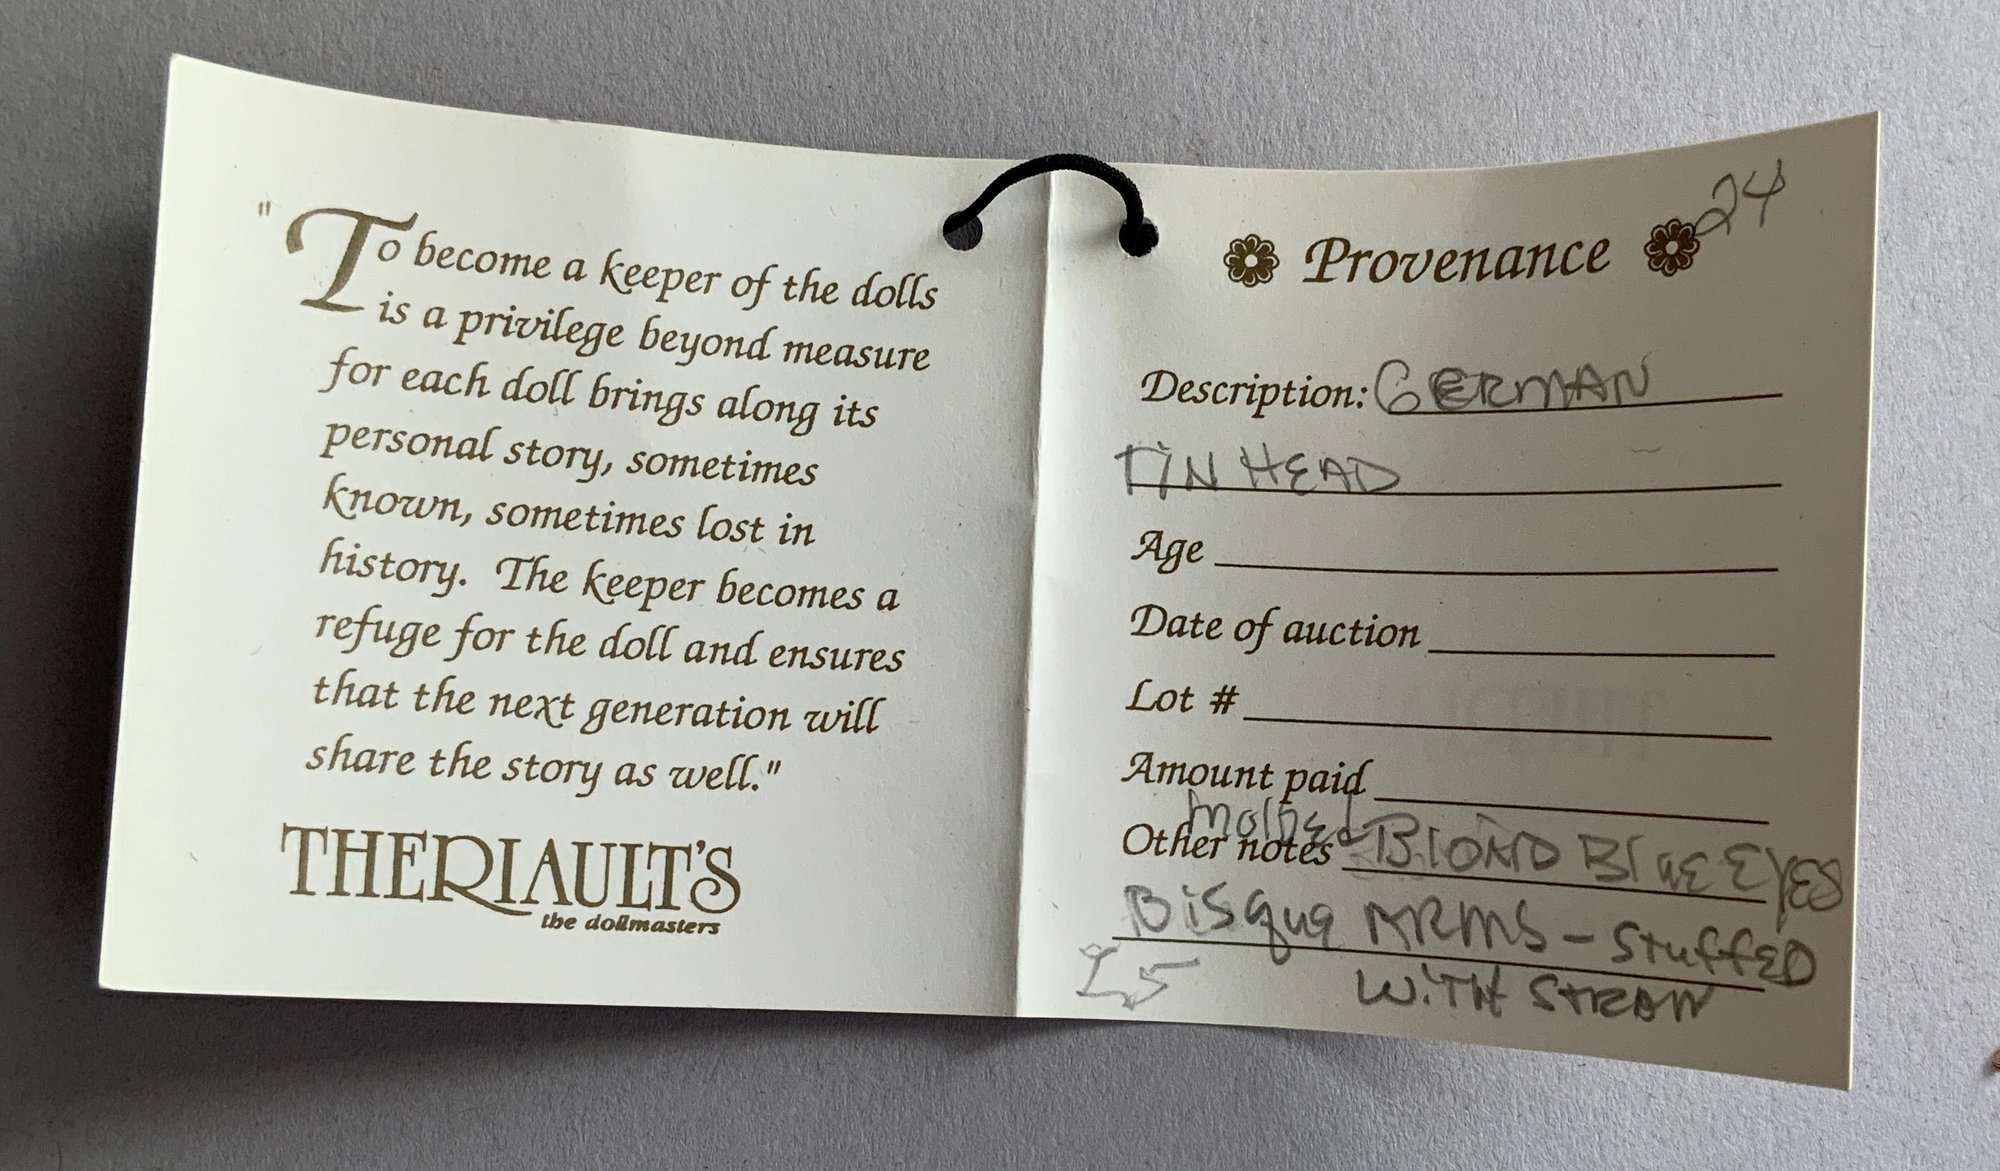 "To become a keeper of the dolls
is a privilege beyond measure
for each doll brings along its
personal story, sometimes
known, sometimes lost in
history. The keeper becomes a
refuge for the doll and ensures
that the next generation will
share the story as well."
THERIAULT'S
the dollmasters
24
Provenance
Description: GERMAN
TIN HEAD
Age
Date of auction
Lot #
Amount paid
molDED
Other notes BlOND BluE EyES
BiSque ARMS - StuffED
WiTH STRAW